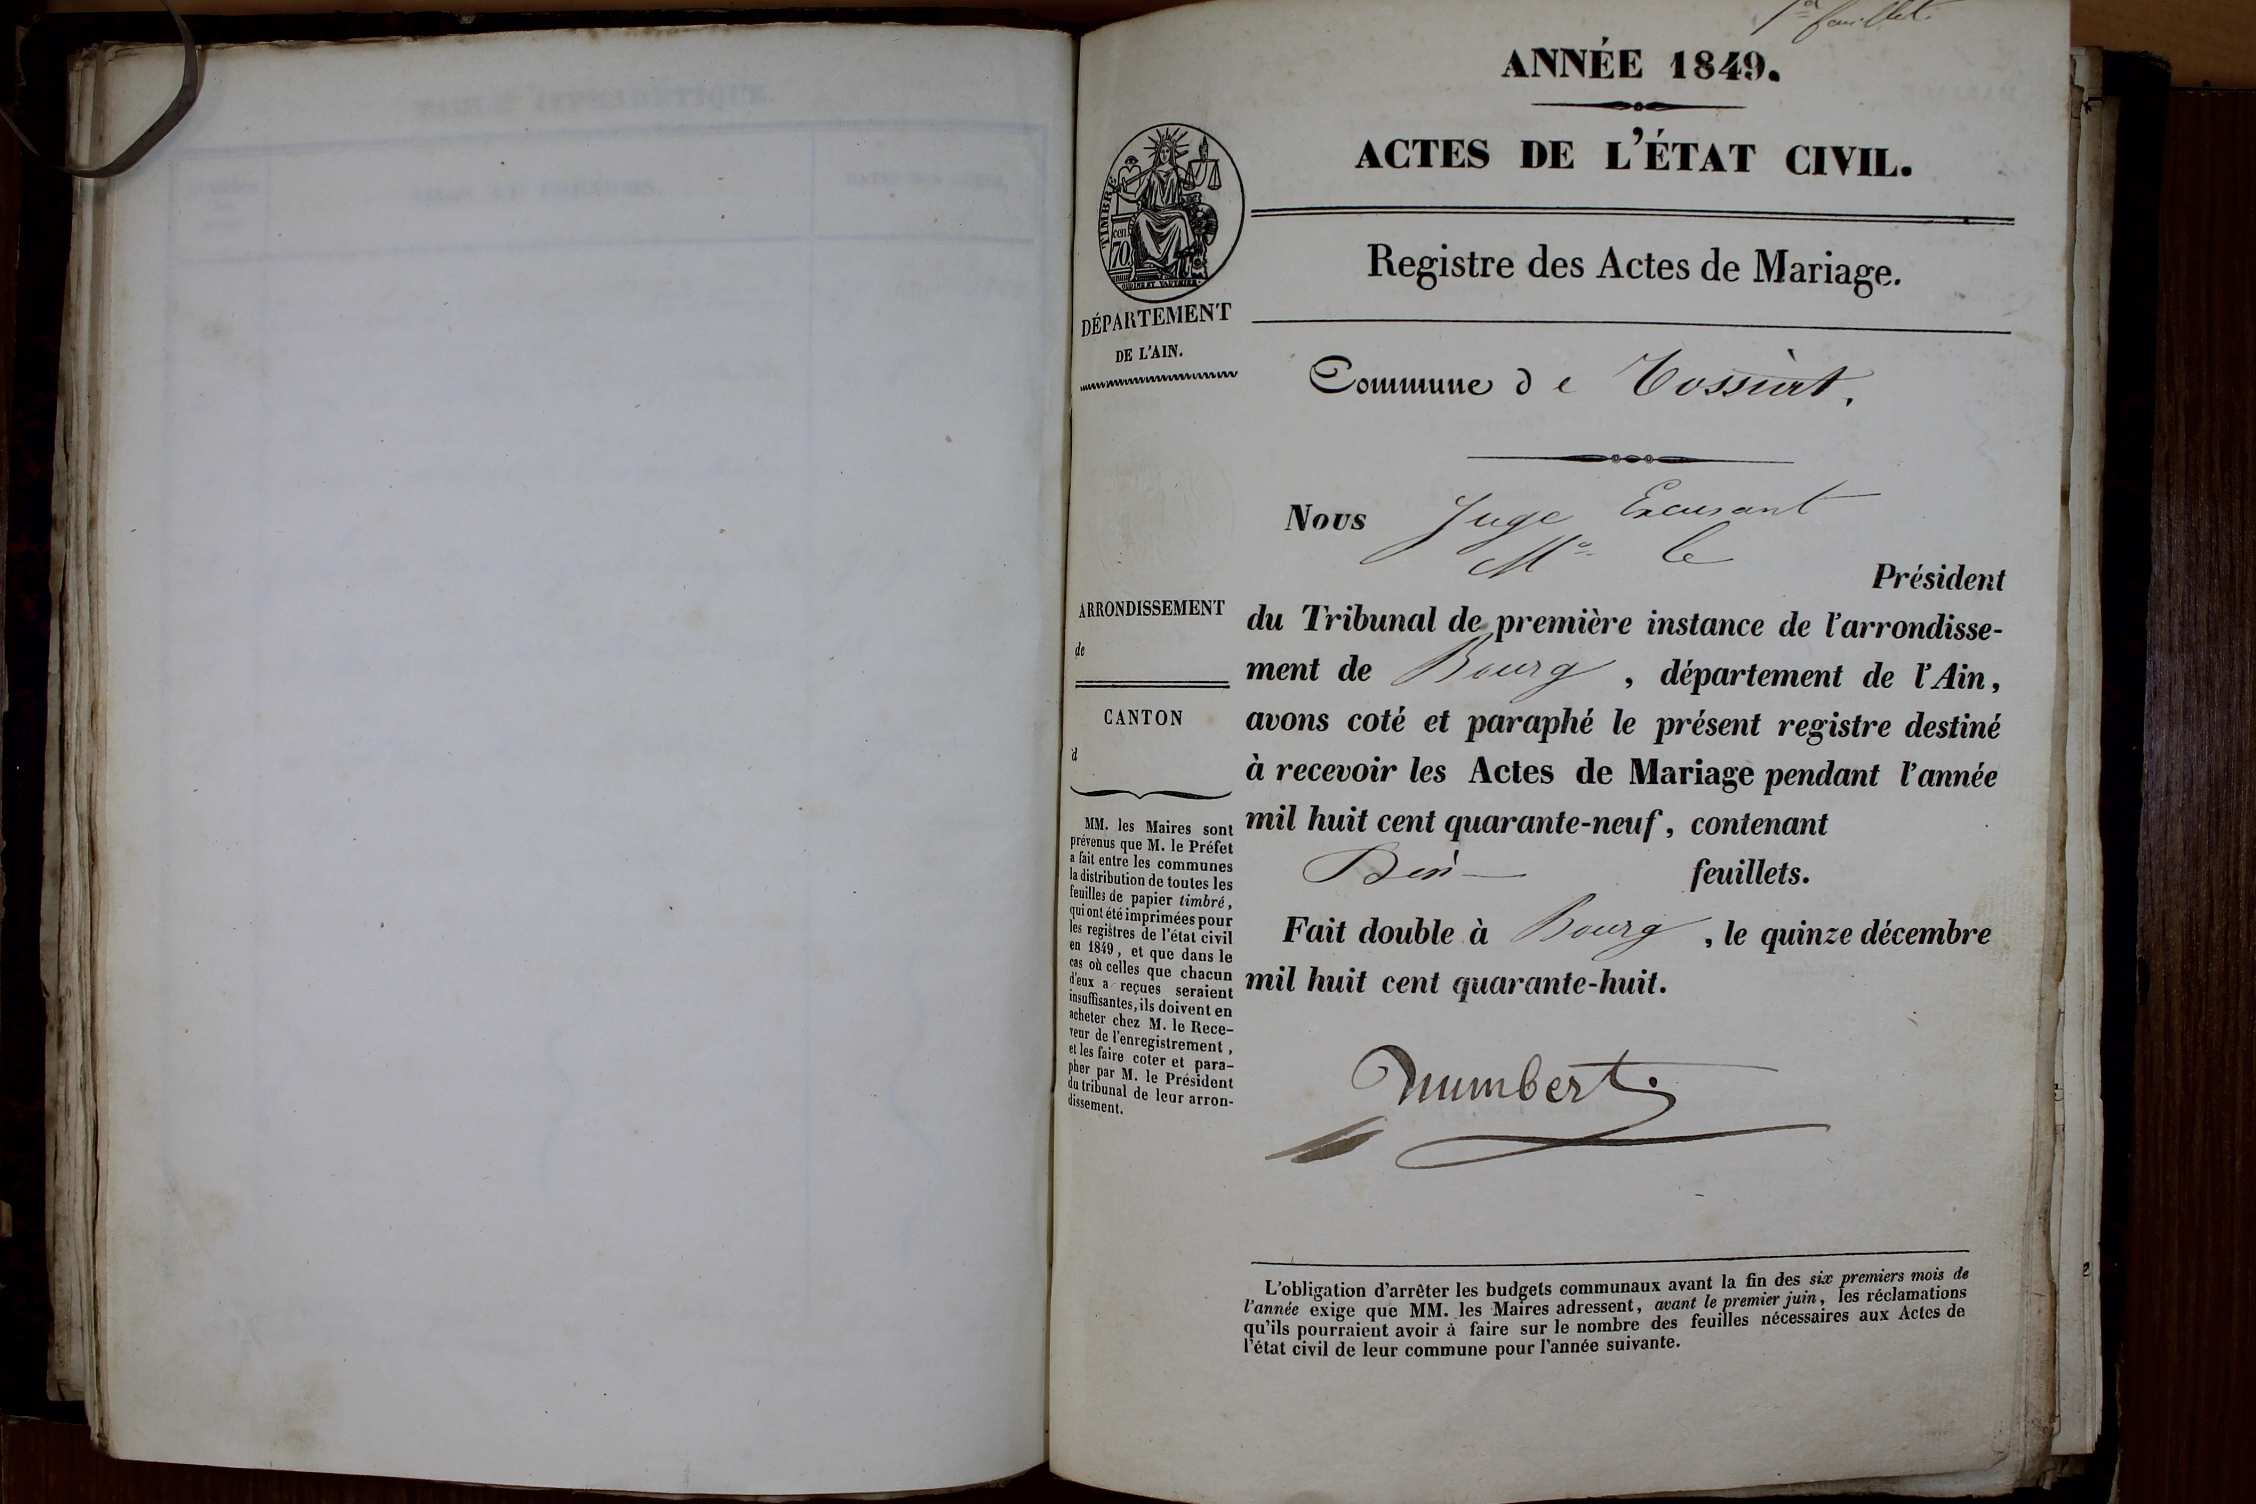 1er feuillet.
ANNÉE 1849.
ACTES DE L'ÉTAT CIVIL.
Registre des Actes de Mariage.
TIMBRE
cen.
70
DÉPARTEMENT
DE L'AIN.
Commune de Tossiat.
Nous Juge
Mr le
Président
du Tribunal de première instance de l'arrondisse-
ment de Bourg, département de l'Ain,
avons coté et paraphé le présent registre destiné
à recevoir les Actes de Mariage pendant l'année
mil huit cent quarante-neuf, contenant
feuillets.
Fait double à Bourg, le quinze décembre
mil huit cent quarante-huit.
humbert.
ARRONDISSEMENT
de
CANTON
d
MM. les Maires sont
prévenus que M. le Préfet
a fait entre les communes
la distribution de toutes les
feuilles de papier timbré,
qui ont été imprimées pour
les registres de l'état civil
en 1849, et que dans le
cas où celles que chacun
d'eux a reçues seraient
insuffisantes, ils doivent en
acheter chez M. le Rece-
veur de l'enregistrement,
et les faire coter et para-
pher par M. le Président
du tribunal de leur arron-
dissement.
L'obligation d'arrêter les budgets communaux avant la fin des six premiers mois de
l'année exige que MM. les Maires adressent, avant le premier juin, les réclamations
qu'ils pourraient avoir à faire sur le nombre des feuilles nécessaires aux Actes de
l'état civil de leur commune pour l'année suivante.